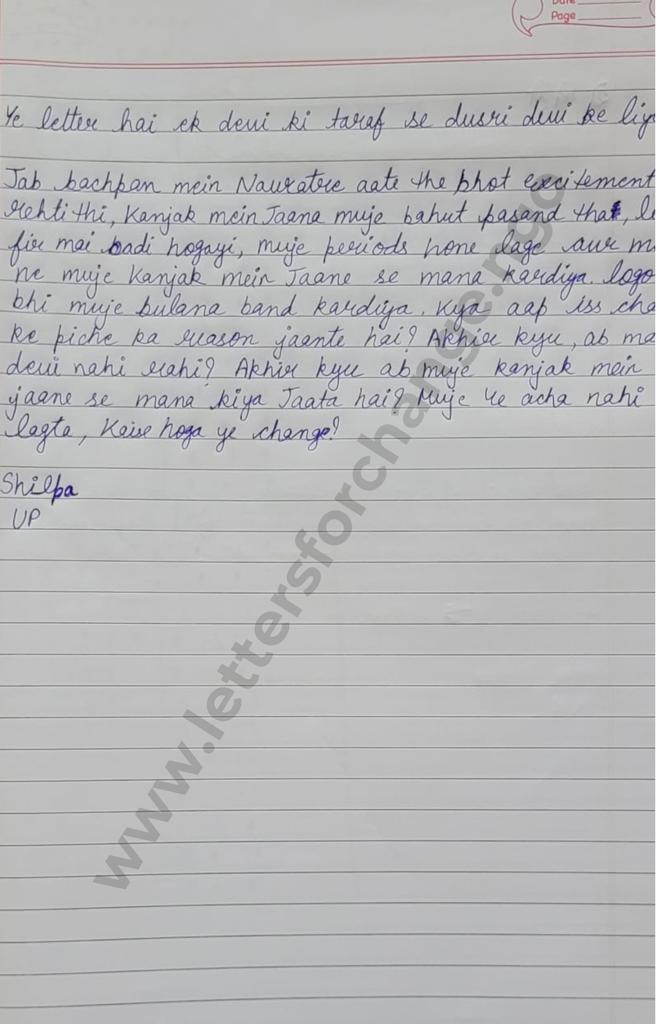 Date
Page
Ye letter hai ek devi ki taraf se dusri devi ke liye
Jab bachpan mein Nauratre aate the bhot excitement
rehti thi, Kanjak mein Jaana muje bahut pasand tha, le
fir mai badi hogayi, muje periods hone lage aur m
ne muje Kanjak mein Jaane se mana kardiya. logo
bhi muje bulana band kardiya. Kya aap iss cha
ke piche ka reason jaante hai? Akhir kyu, ab ma
devi nahi rahi? Akhir kyu ab muje kanjak mein
jaane se mana kiya Jaata hai? Muje ye acha nahi
lagta, Kaise hoga ye change?
Shilpa
UP
www.lettersforchange.ngo